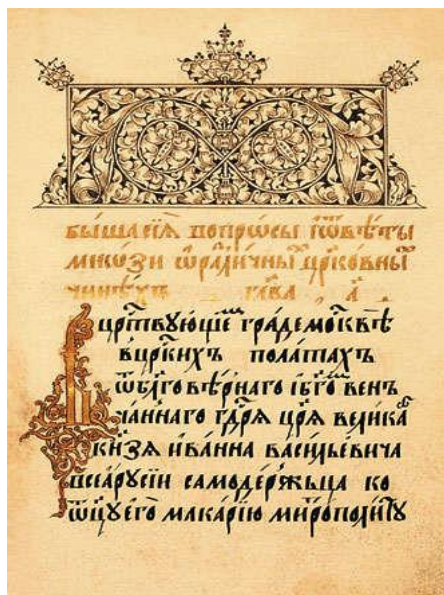 бы́шаѥ сїѧ̀ вопрѡсы и҆ѿвѣ́ты
мно́зи ѡразли́чныⷯ црⷪ҇ко́вныⷯ
чинѣ́хъ гла́ва а҃
Въ црⷭ҇твующеⷨ гра́де москвѣ̀
в црⷭ҇кихъ пола́тахъ
ѿ бл҃гове́рнаго и҆ бг҃овен
ча́ннаго гдⷭ҇рѧ цр҃ѧ̀ вели́каⷢ҇
кнѧ́зѧ ива́нна васи́льевича
всеѧ̀ рꙋсїи самоде́ржьца ко
ѿцꙋ̀ его̀ мака́рїю митрополи́тꙋ